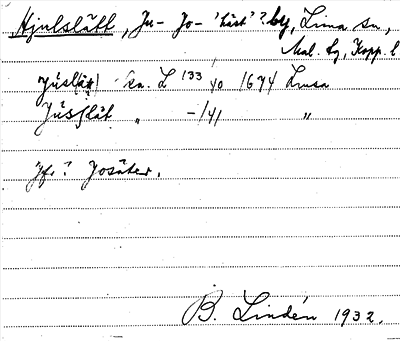 Hjulslätt, Ju- Jo- 'häst'? by, Lima sn,
Mal. tg, Kopp. l
Jusslätt kn. L 133 40 1674 Lima
Jusslät " -/41 "
Jfr? Josäter.
B. Lindén 1932.